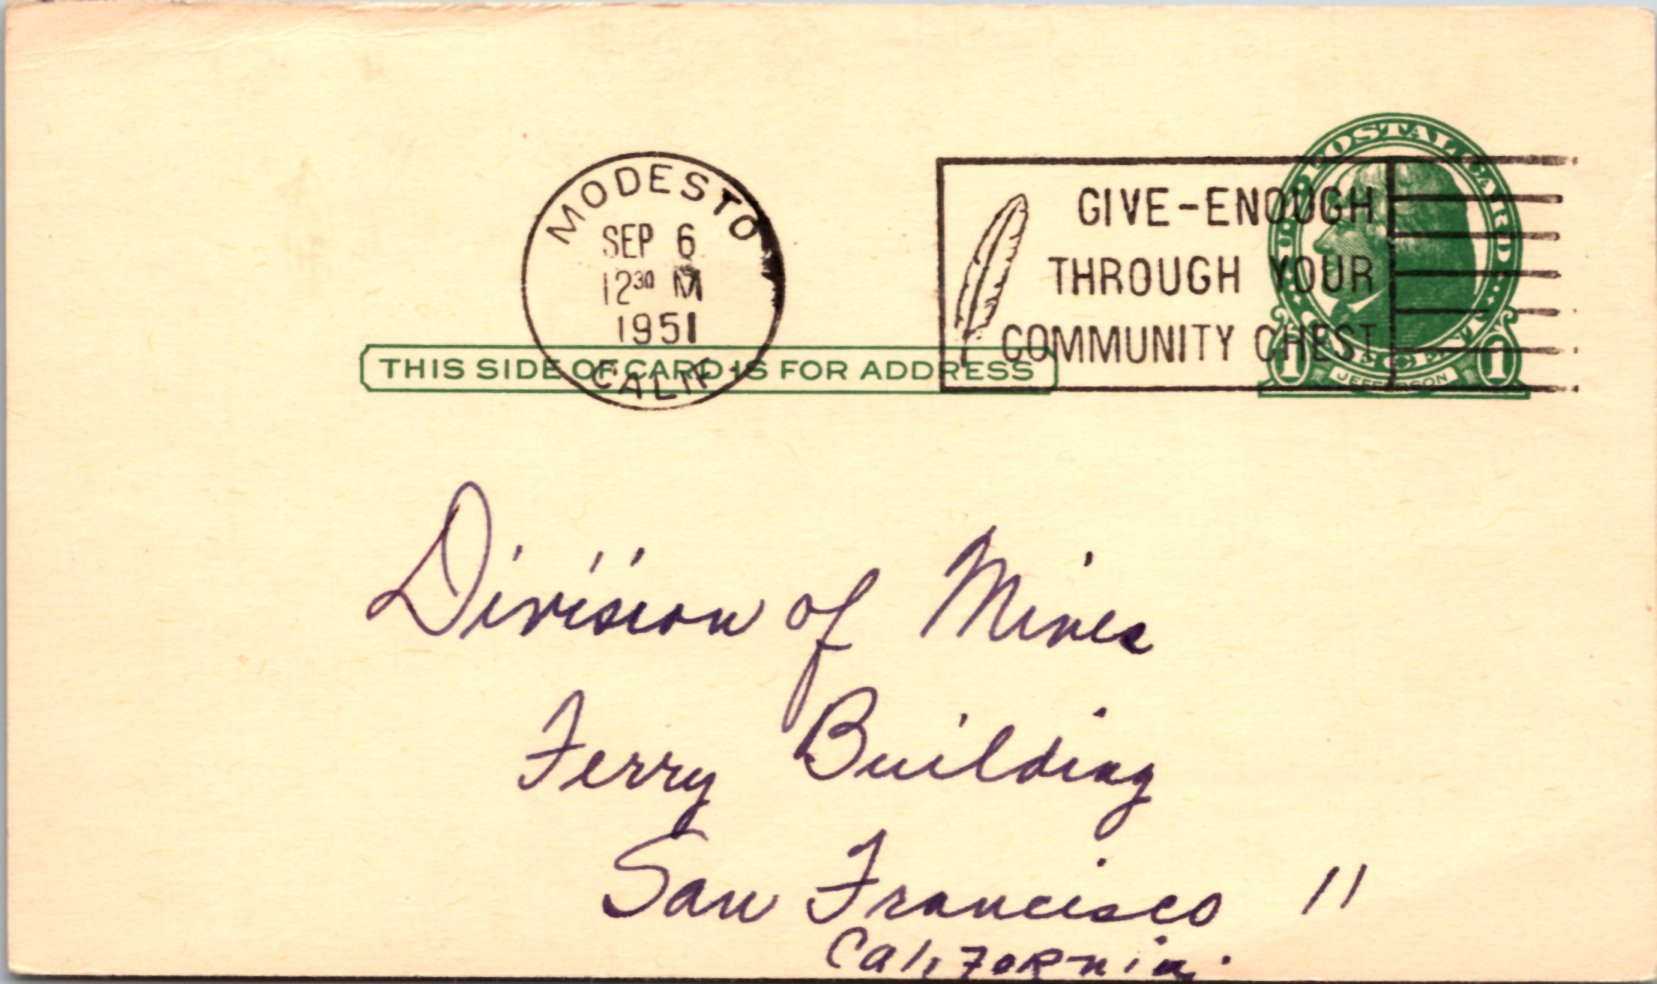 MODESTO
SEP 6
12 30 M
1951
CALIF.
GIVE-ENOUGH
THROUGH YOUR
COMMUNITY CHEST
U.S. POSTAL CARD
ONE CENT
1 JEFFERSON 1
THIS SIDE OF CARD IS FOR ADDRESS
Division of Mines
Ferry Building
San Francisco 11
California.